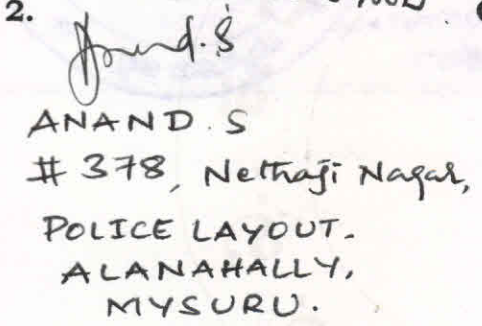 2.
Anand.S
ANAND.S
# 378, Nethaji Nagar,
POLICE LAYOUT.
ALANAHALLY,
MYSURU.